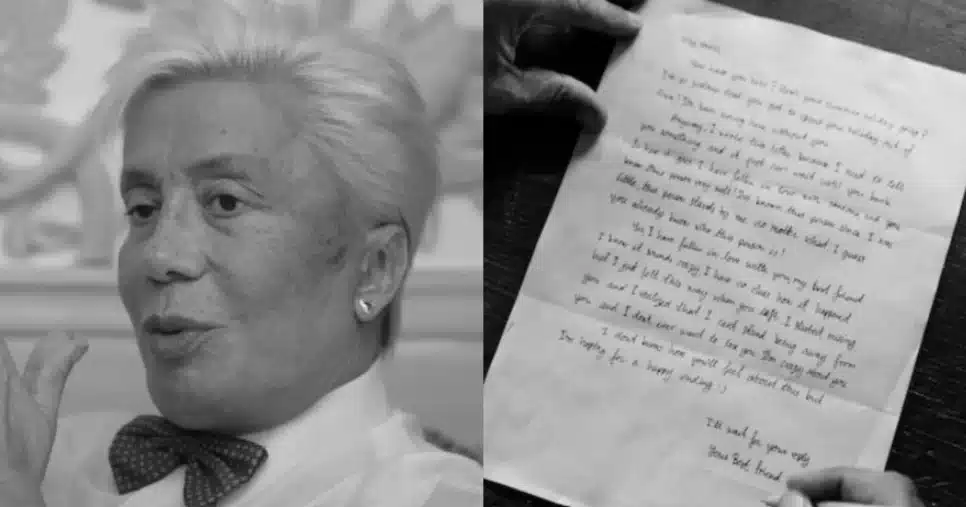 Hey
How have you been? How's your summer holiday going?
I'm so jealous that you get to spend your holiday out of
town! I'm been boring here without you
Anyway, I wrote this letter because I need to tell
you something and it just can't wait until you're back
So here it goes I have fallen in love with someone and you
know this person very well! I've known this person since I was
little, this person stands by me no matter what. I guess
you already know who this person is!
Yes I have fallen in love with you, my best friend
I know it sounds crazy, I have no clue how it happened
but I just felt this way when you left. I started missing
you and I realized that I can't stand being away from
you and I don't ever want to lose you. I'm crazy about you
I don't know how you'll feel about this but
I'm hoping for a happy ending :)
I'll wait for your reply
Your Best friend